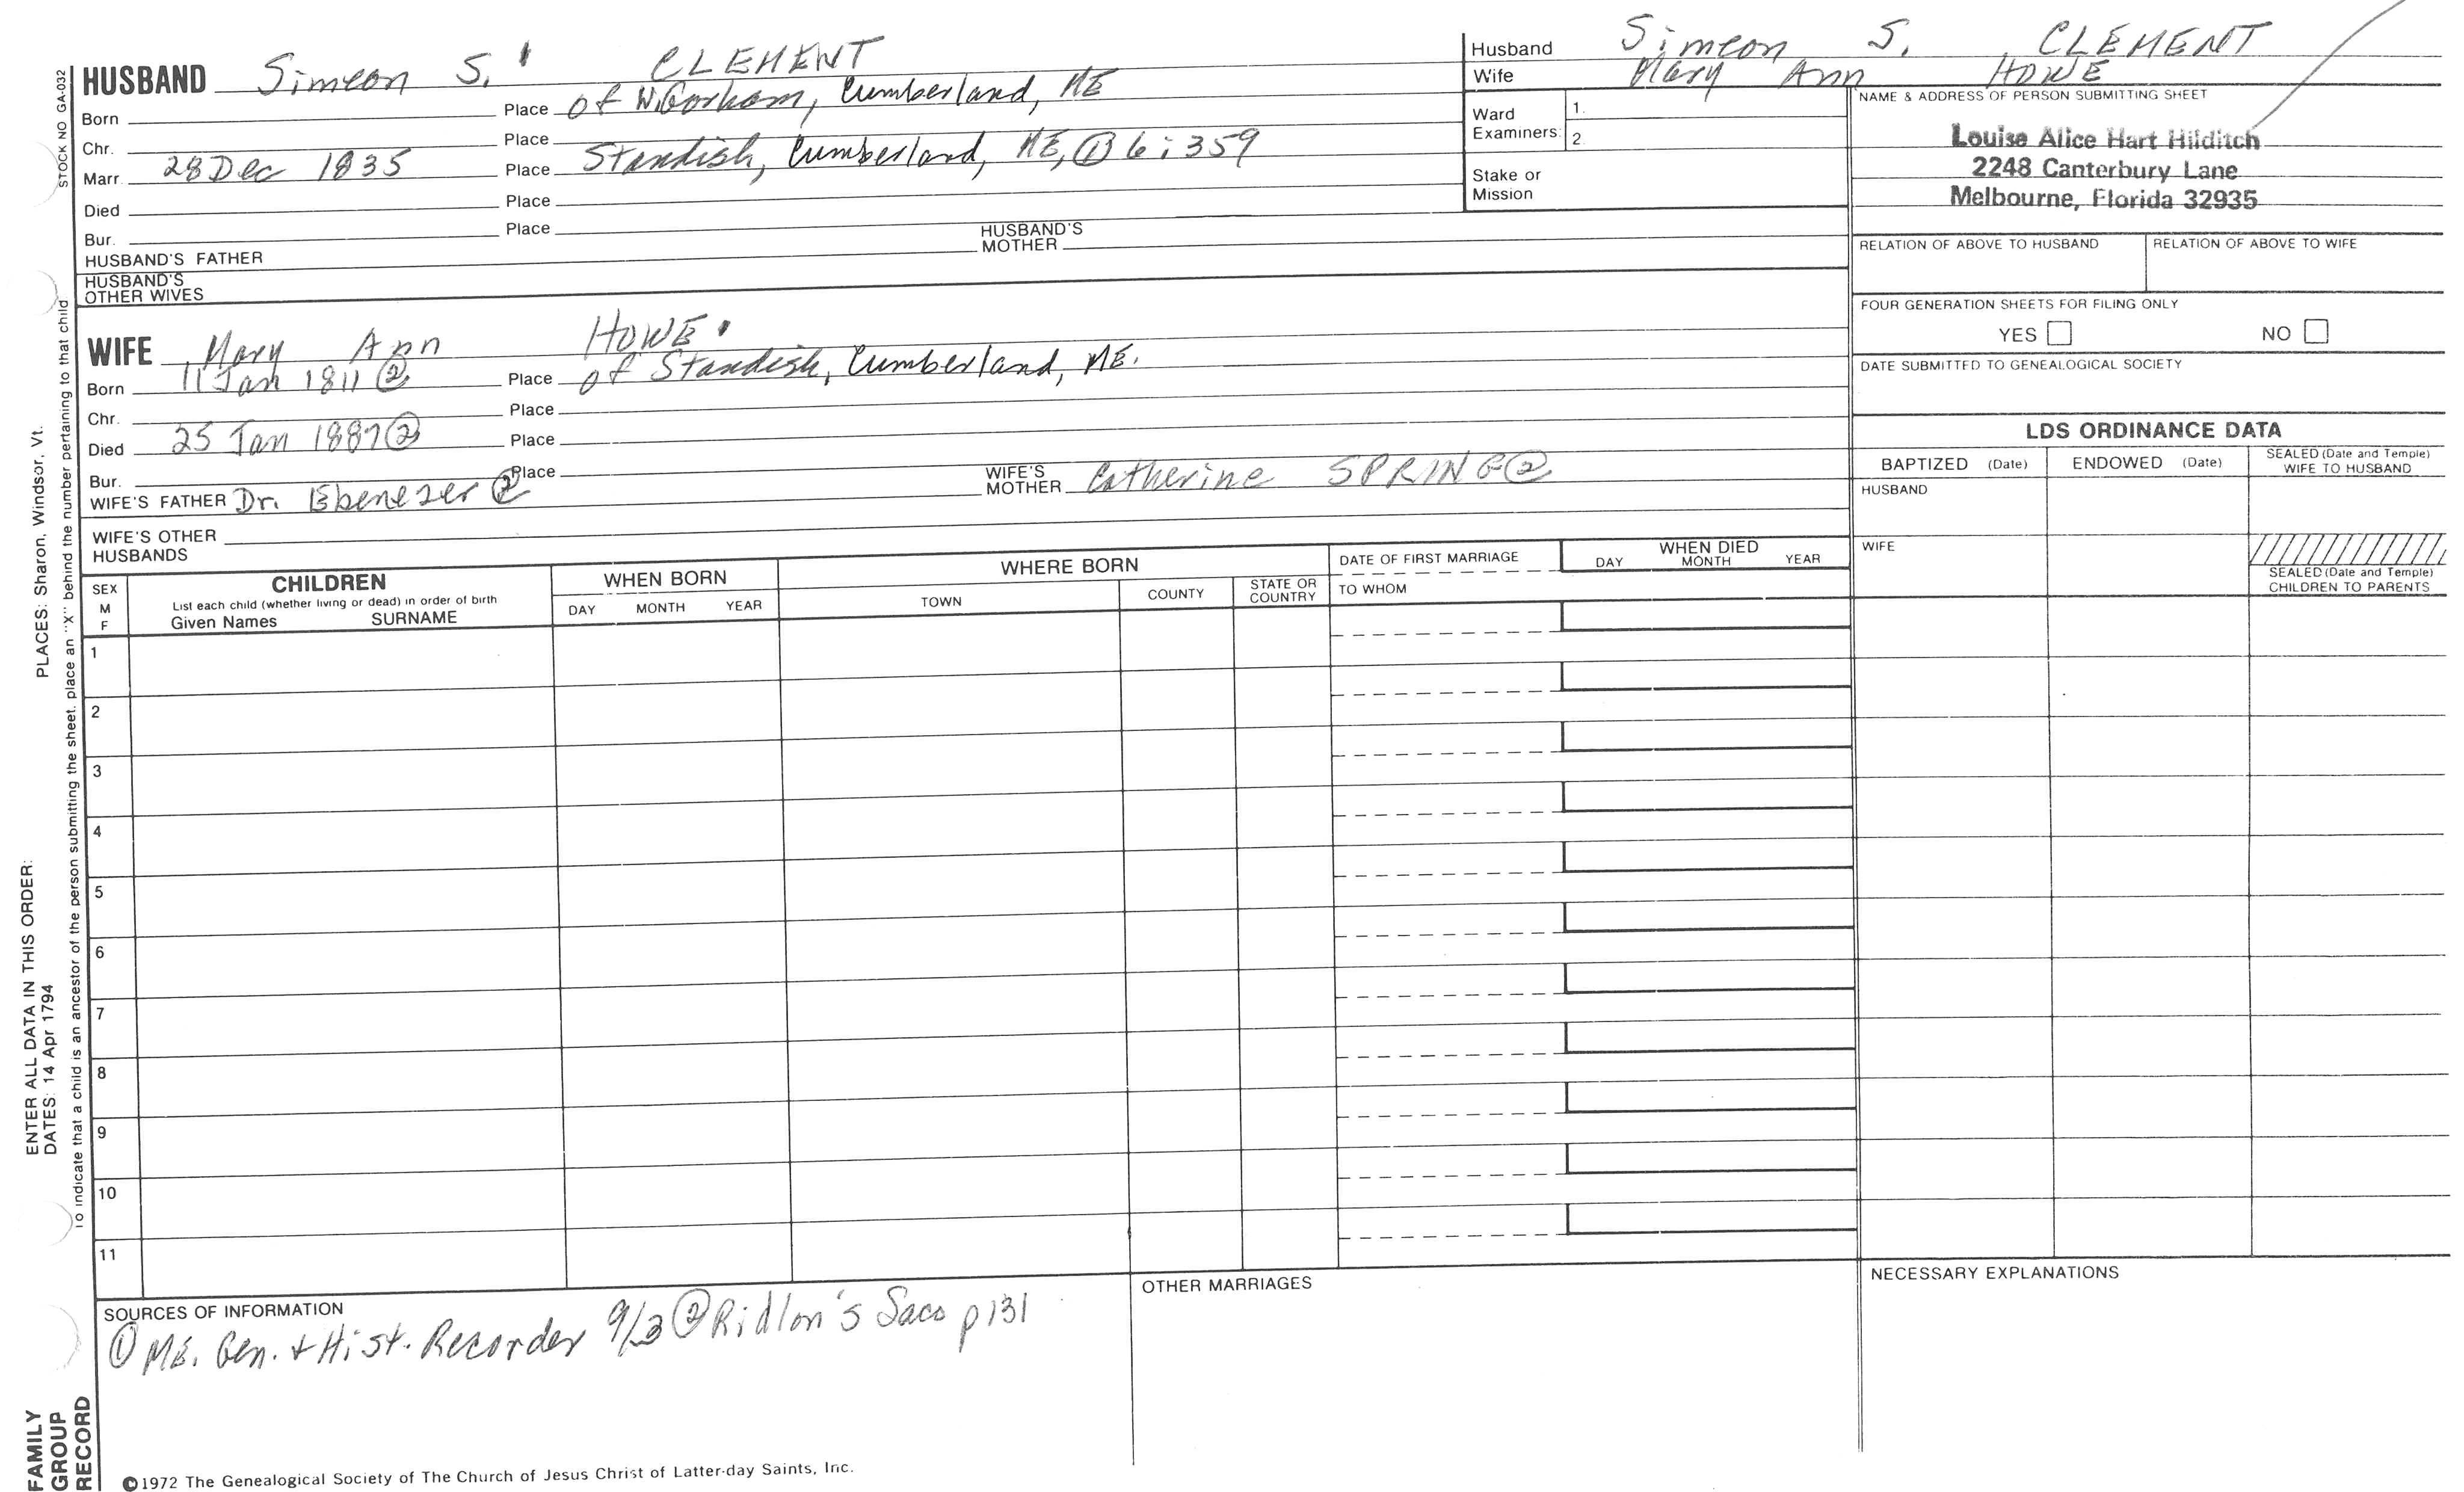 HUSBAND Simeon S. CLEMENT
Born Place of W. Gorham, Cumberland, ME
Chr. Place
Marr. 28 Dec 1835 Place Standish, Cumberland, ME, ① 6:359
Died Place
Bur. Place
HUSBAND'S FATHER HUSBAND'S MOTHER
HUSBAND'S OTHER WIVES
WIFE Mary Ann HOWE
Born 11 Jan 1811 ② Place of Standish, Cumberland, ME.
Chr. Place
Died 25 Jan 1887 ② Place
Bur. Place
WIFE'S FATHER Dr. Ebenezer ② WIFE'S MOTHER Catherine SPRING ②
WIFE'S OTHER HUSBANDS
Husband Simeon S. CLEMENT
Wife Mary Ann HOWE
Ward Examiners: 1.
2.
Stake or Mission
NAME & ADDRESS OF PERSON SUBMITTING SHEET
Louise Alice Hart Hilditch
2248 Canterbury Lane
Melbourne, Florida 32935
RELATION OF ABOVE TO HUSBAND RELATION OF ABOVE TO WIFE
FOUR GENERATION SHEETS FOR FILING ONLY
YES NO
DATE SUBMITTED TO GENEALOGICAL SOCIETY
LDS ORDINANCE DATA
BAPTIZED (Date) ENDOWED (Date) SEALED (Date and Temple) WIFE TO HUSBAND
HUSBAND
WIFE
SEALED (Date and Temple) CHILDREN TO PARENTS
SEX M F
CHILDREN
List each child (whether living or dead) in order of birth
Given Names SURNAME
WHEN BORN
DAY MONTH YEAR
WHERE BORN
TOWN COUNTY STATE OR COUNTRY
DATE OF FIRST MARRIAGE
TO WHOM
WHEN DIED
DAY MONTH YEAR
1
2
3
4
5
6
7
8
9
10
11
SOURCES OF INFORMATION
① ME. Gen. + Hist. Recorder 9/3 ② Ridlon's Saco p131
OTHER MARRIAGES
NECESSARY EXPLANATIONS
©1972 The Genealogical Society of The Church of Jesus Christ of Latter-day Saints, Inc.
STOCK NO GA-032
PLACES: Sharon, Windsor, Vt.
To indicate that a child is an ancestor of the person submitting the sheet, place an "X" behind the number pertaining to that child
ENTER ALL DATA IN THIS ORDER:
DATES: 14 Apr 1794
FAMILY
GROUP
RECORD